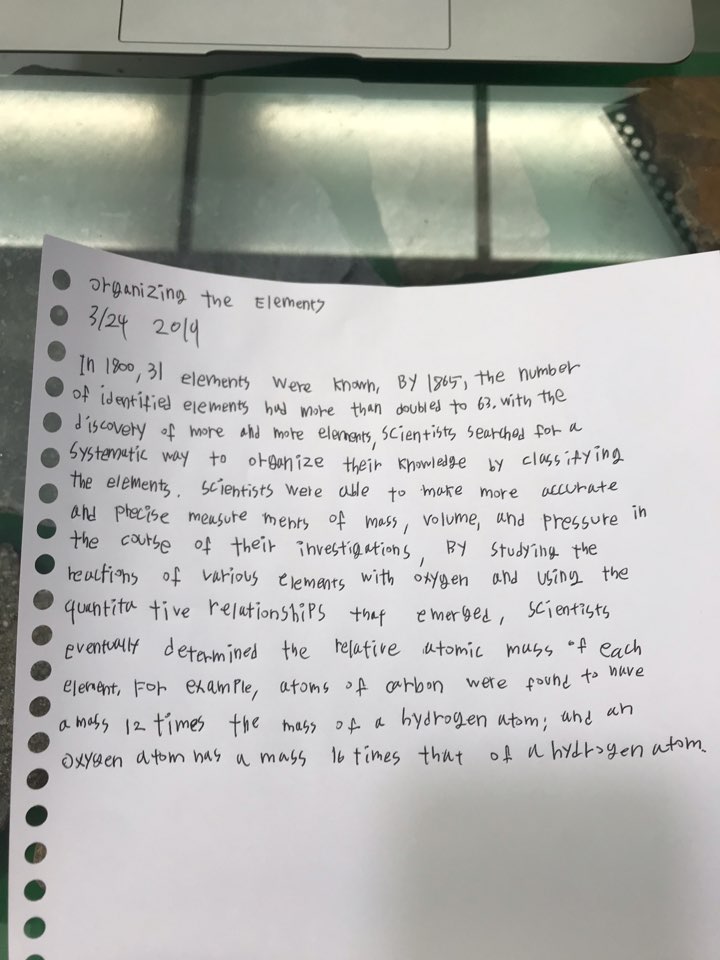 Organizing the Elements
3/24 2019
In 1800, 31 elements were known, BY 1865, the number
of identified elements had more than doubled to 63. with the
discovery of more and more elements, scientists searched for a
systematic way to organize their knowledge by classifying
the elements. Scientists were able to make more accurate
and precise measure ments of mass, volume, and pressure in
the course of their investigations, By studying the
reactions of various elements with oxygen and using the
quantita tive relationships that emerged, scientists
eventually determined the relative atomic mass of each
element, For example, atoms of carbon were found to have
a mass 12 times the mass of a hydrogen atom; and an
oxygen atom has a mass 16 times that of a hydrogen atom.